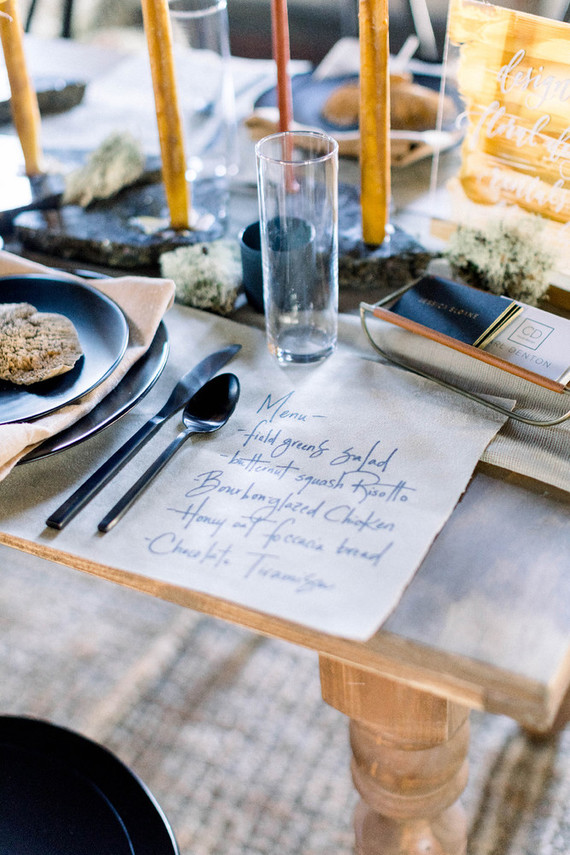 design
floral
rentals
JESSICA SLOANE
CD
DENTON
Menu-
-field greens Salad
-butternut squash Risotto
Bourbon glazed Chicken
Honey oat foccacia bread
-Chocolate Tiramisu